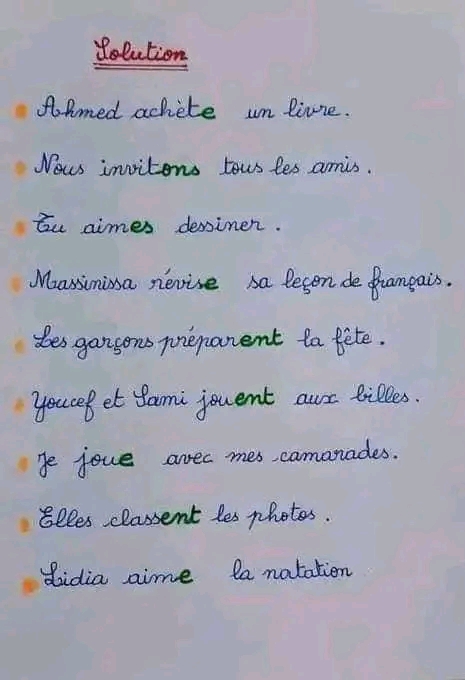 Solution
Ahmed achète un livre.
Nous invitons tous les amis.
Tu aimes dessiner.
Massinissa révise sa leçon de français.
Les garçons préparent la fête.
Youcef et Sami jouent aux billes.
Je joue avec mes camarades.
Elles classent les photos.
Lidia aime la natation